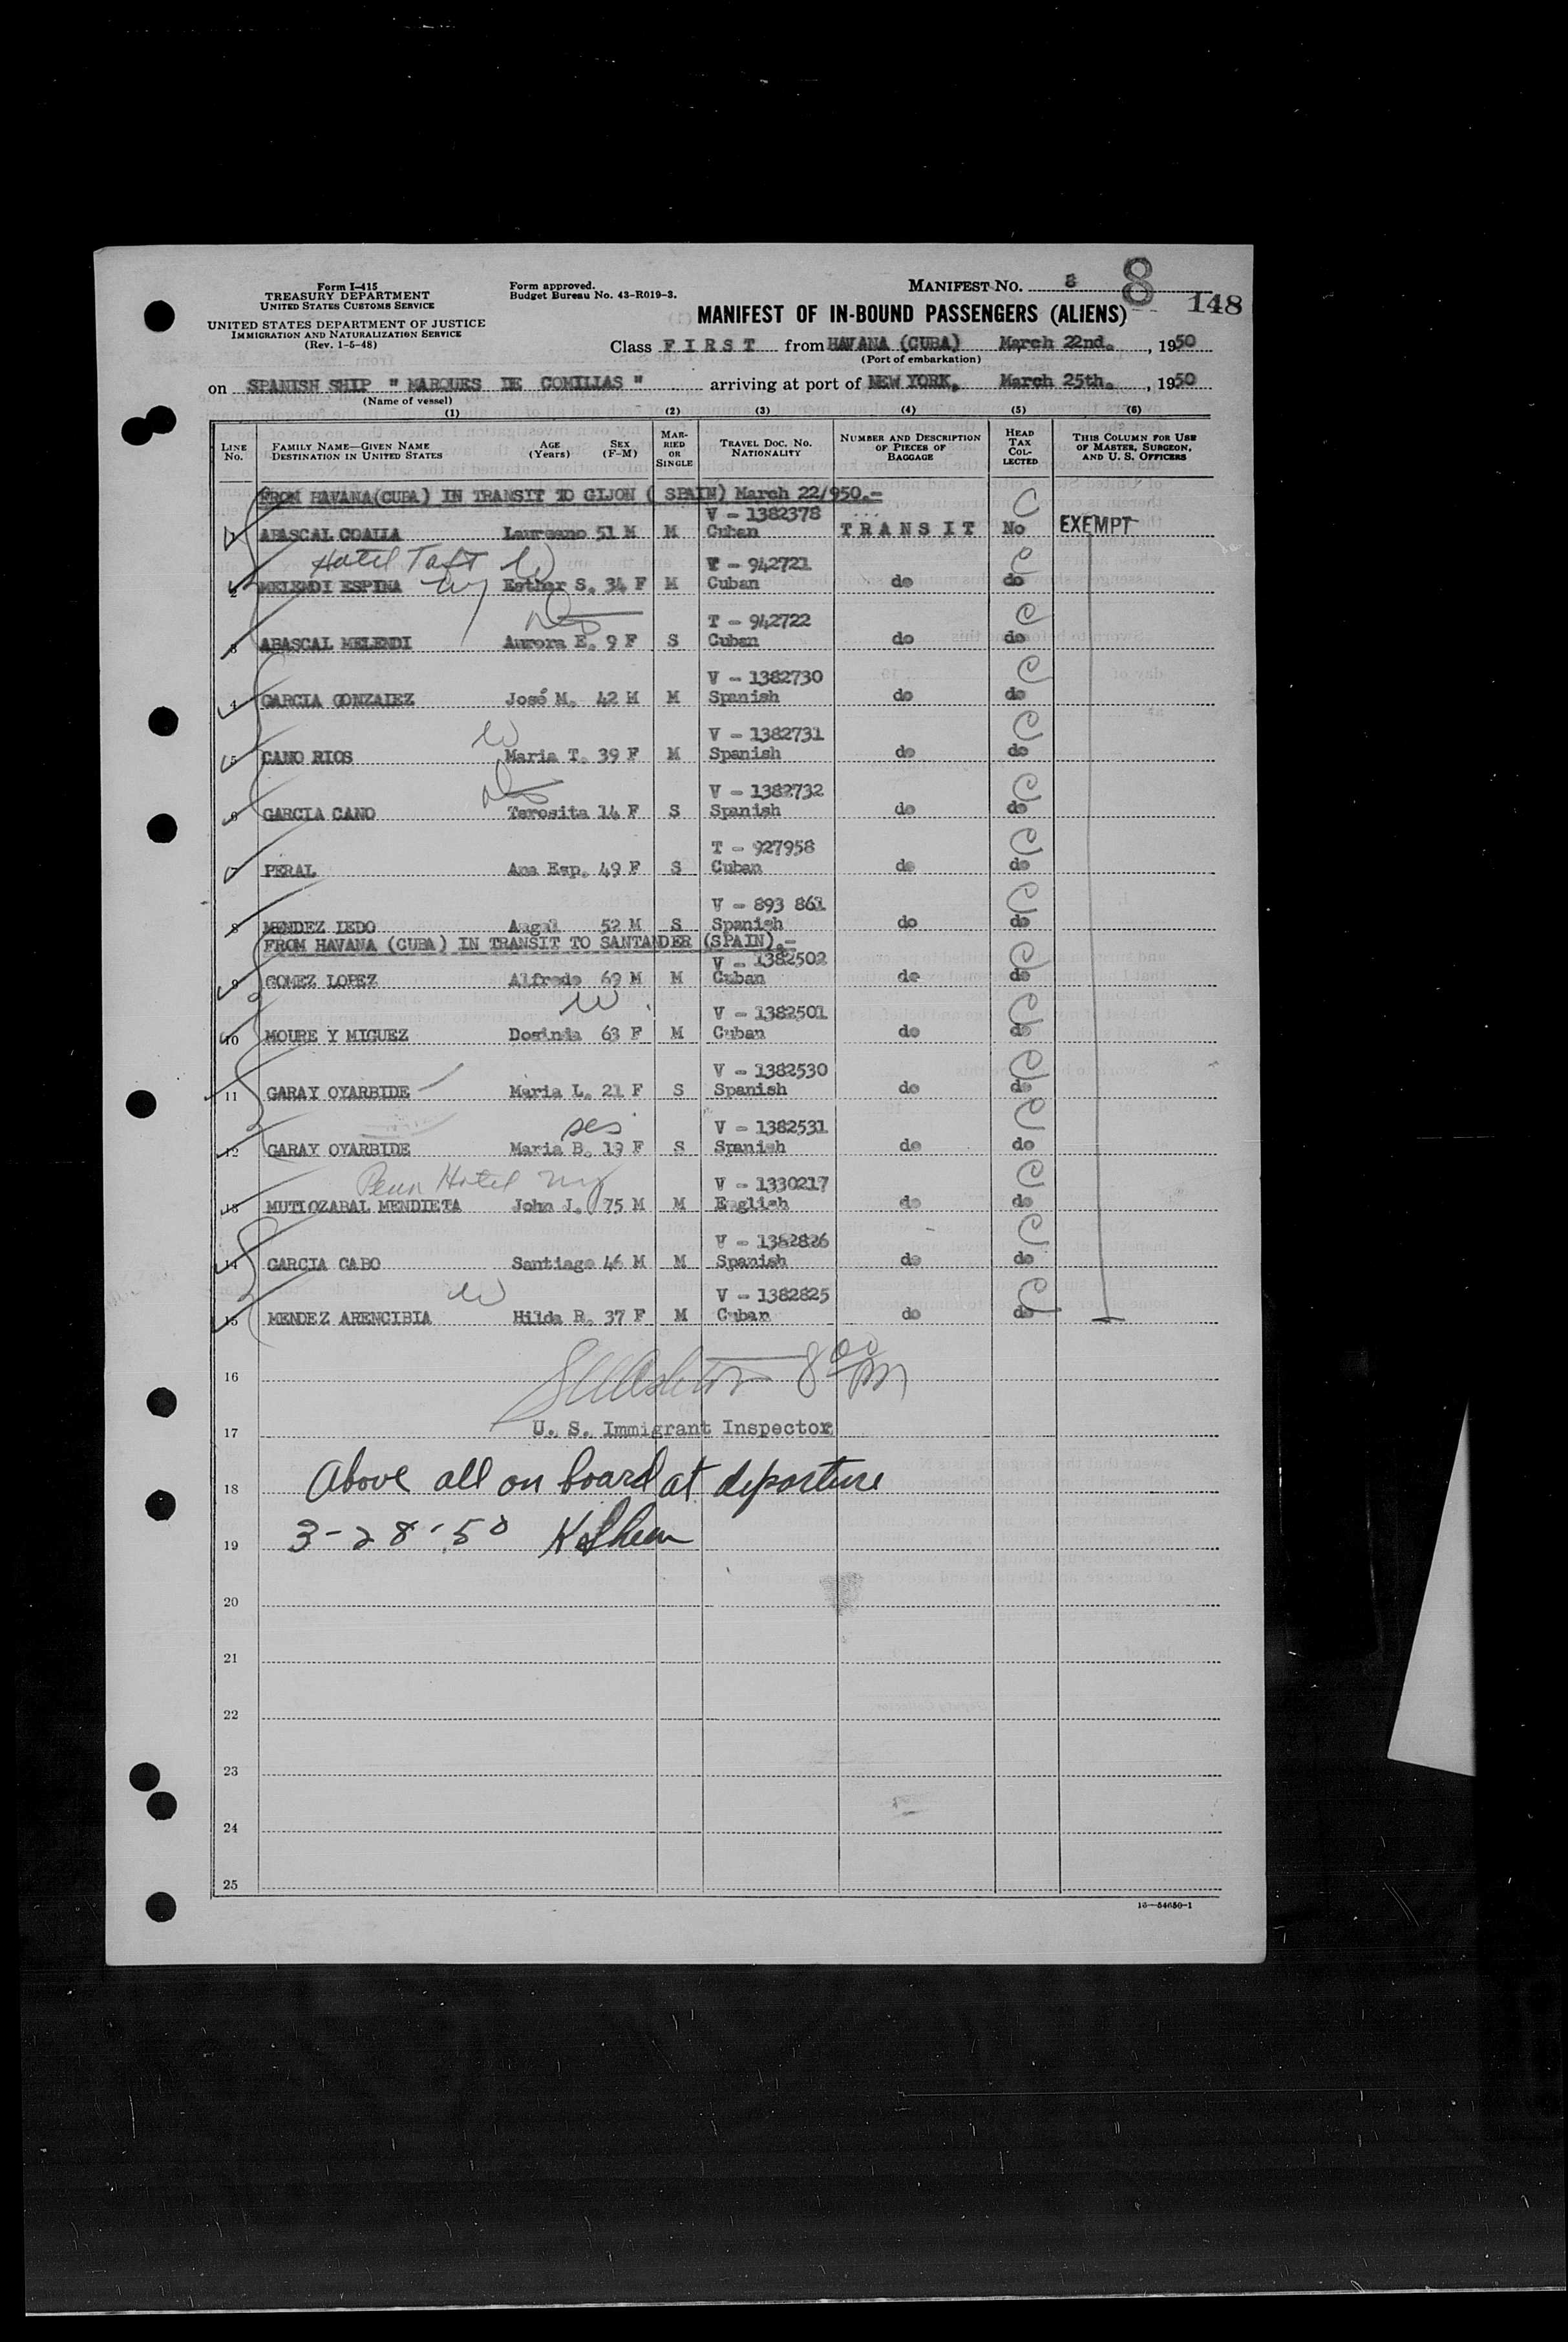 Form I-415
TREASURY DEPARTMENT
UNITED STATES CUSTOMS SERVICE
UNITED STATES DEPARTMENT OF JUSTICE
IMMIGRATION AND NATURALIZATION SERVICE
(Rev. 1-5-48)
Form approved.
Budget Bureau No. 43-R019-3.
MANIFEST NO. 8 8 148
MANIFEST OF IN-BOUND PASSENGERS (ALIENS)
Class F I R S T from HAVANA (CUBA) March 22nd. , 1950
(Port of embarkation)
on SPANISH SHIP " MARQUES DE COMILLAS " arriving at port of NEW YORK, March 25th. , 1950
(Name of vessel)
(1) (2) (3) (4) (5) (6)
LINE No. FAMILY NAME—GIVEN NAME DESTINATION IN UNITED STATES AGE (Years) SEX (F-M) MARRIED OR SINGLE TRAVEL DOC. NO. NATIONALITY NUMBER AND DESCRIPTION OF PIECES OF BAGGAGE HEAD TAX COLLECTED THIS COLUMN FOR USE OF MASTER, SURGEON, AND U. S. OFFICERS
FROM HAVANA(CUBA) IN TRANSIT TO GIJON ( SPAIN) March 22/950.-
V - 1382378 C
1 ABASCAL COALLA Laureano 51 M M Cuban T R A N S I T No EXEMPT
Hotel Taft W T - 942721 C
2 MELENDI ESPINA NY Esther S. 34 F M Cuban do do
T - 942722 C
3 ABASCAL MELENDI Aurora E. 9 F S Cuban do do
V - 1382730 C
4 GARCIA GONZALEZ José M. 42 M M Spanish do do
W V - 1382731 C
5 CANO RIOS Maria T. 39 F M Spanish do do
V - 1382732 C
6 GARCIA CANO Teresita 14 F S Spanish do do
T - 927958 C
7 PERAL Ana Esp. 49 F S Cuban do do
V - 893 861 C
8 MENDEZ LEDO Angel 52 M S Spanish do do
FROM HAVANA (CUBA) IN TRANSIT TO SANTANDER (SPAIN).-
V - 1382502 C
9 GOMEZ LOPEZ Alfredo 69 M M Cuban do do
W V - 1382501 C
10 MOURE Y MIGUEZ Dosinia 63 F M Cuban do do
V - 1382530 C
11 GARAY OYARBIDE Maria L. 21 F S Spanish do do
V - 1382531 C
12 GARAY OYARBIDE Maria B. 19 F S Spanish do do
Penn Hotel NY V - 1330217 C
13 MUTIOZABAL MENDIETA John J. 75 M M English do do
V - 1382826 C
14 GARCIA CABO Santiago 46 M M Spanish do do
W V - 1382825 C
15 MENDEZ ARENCIBIA Hilda R. 37 F M Cuban do do
16 8 00 PM
17 U. S. Immigrant Inspector
18 Above all on board at departure
19 3-28-50
20
21
22
23
24
25
16—54650-1